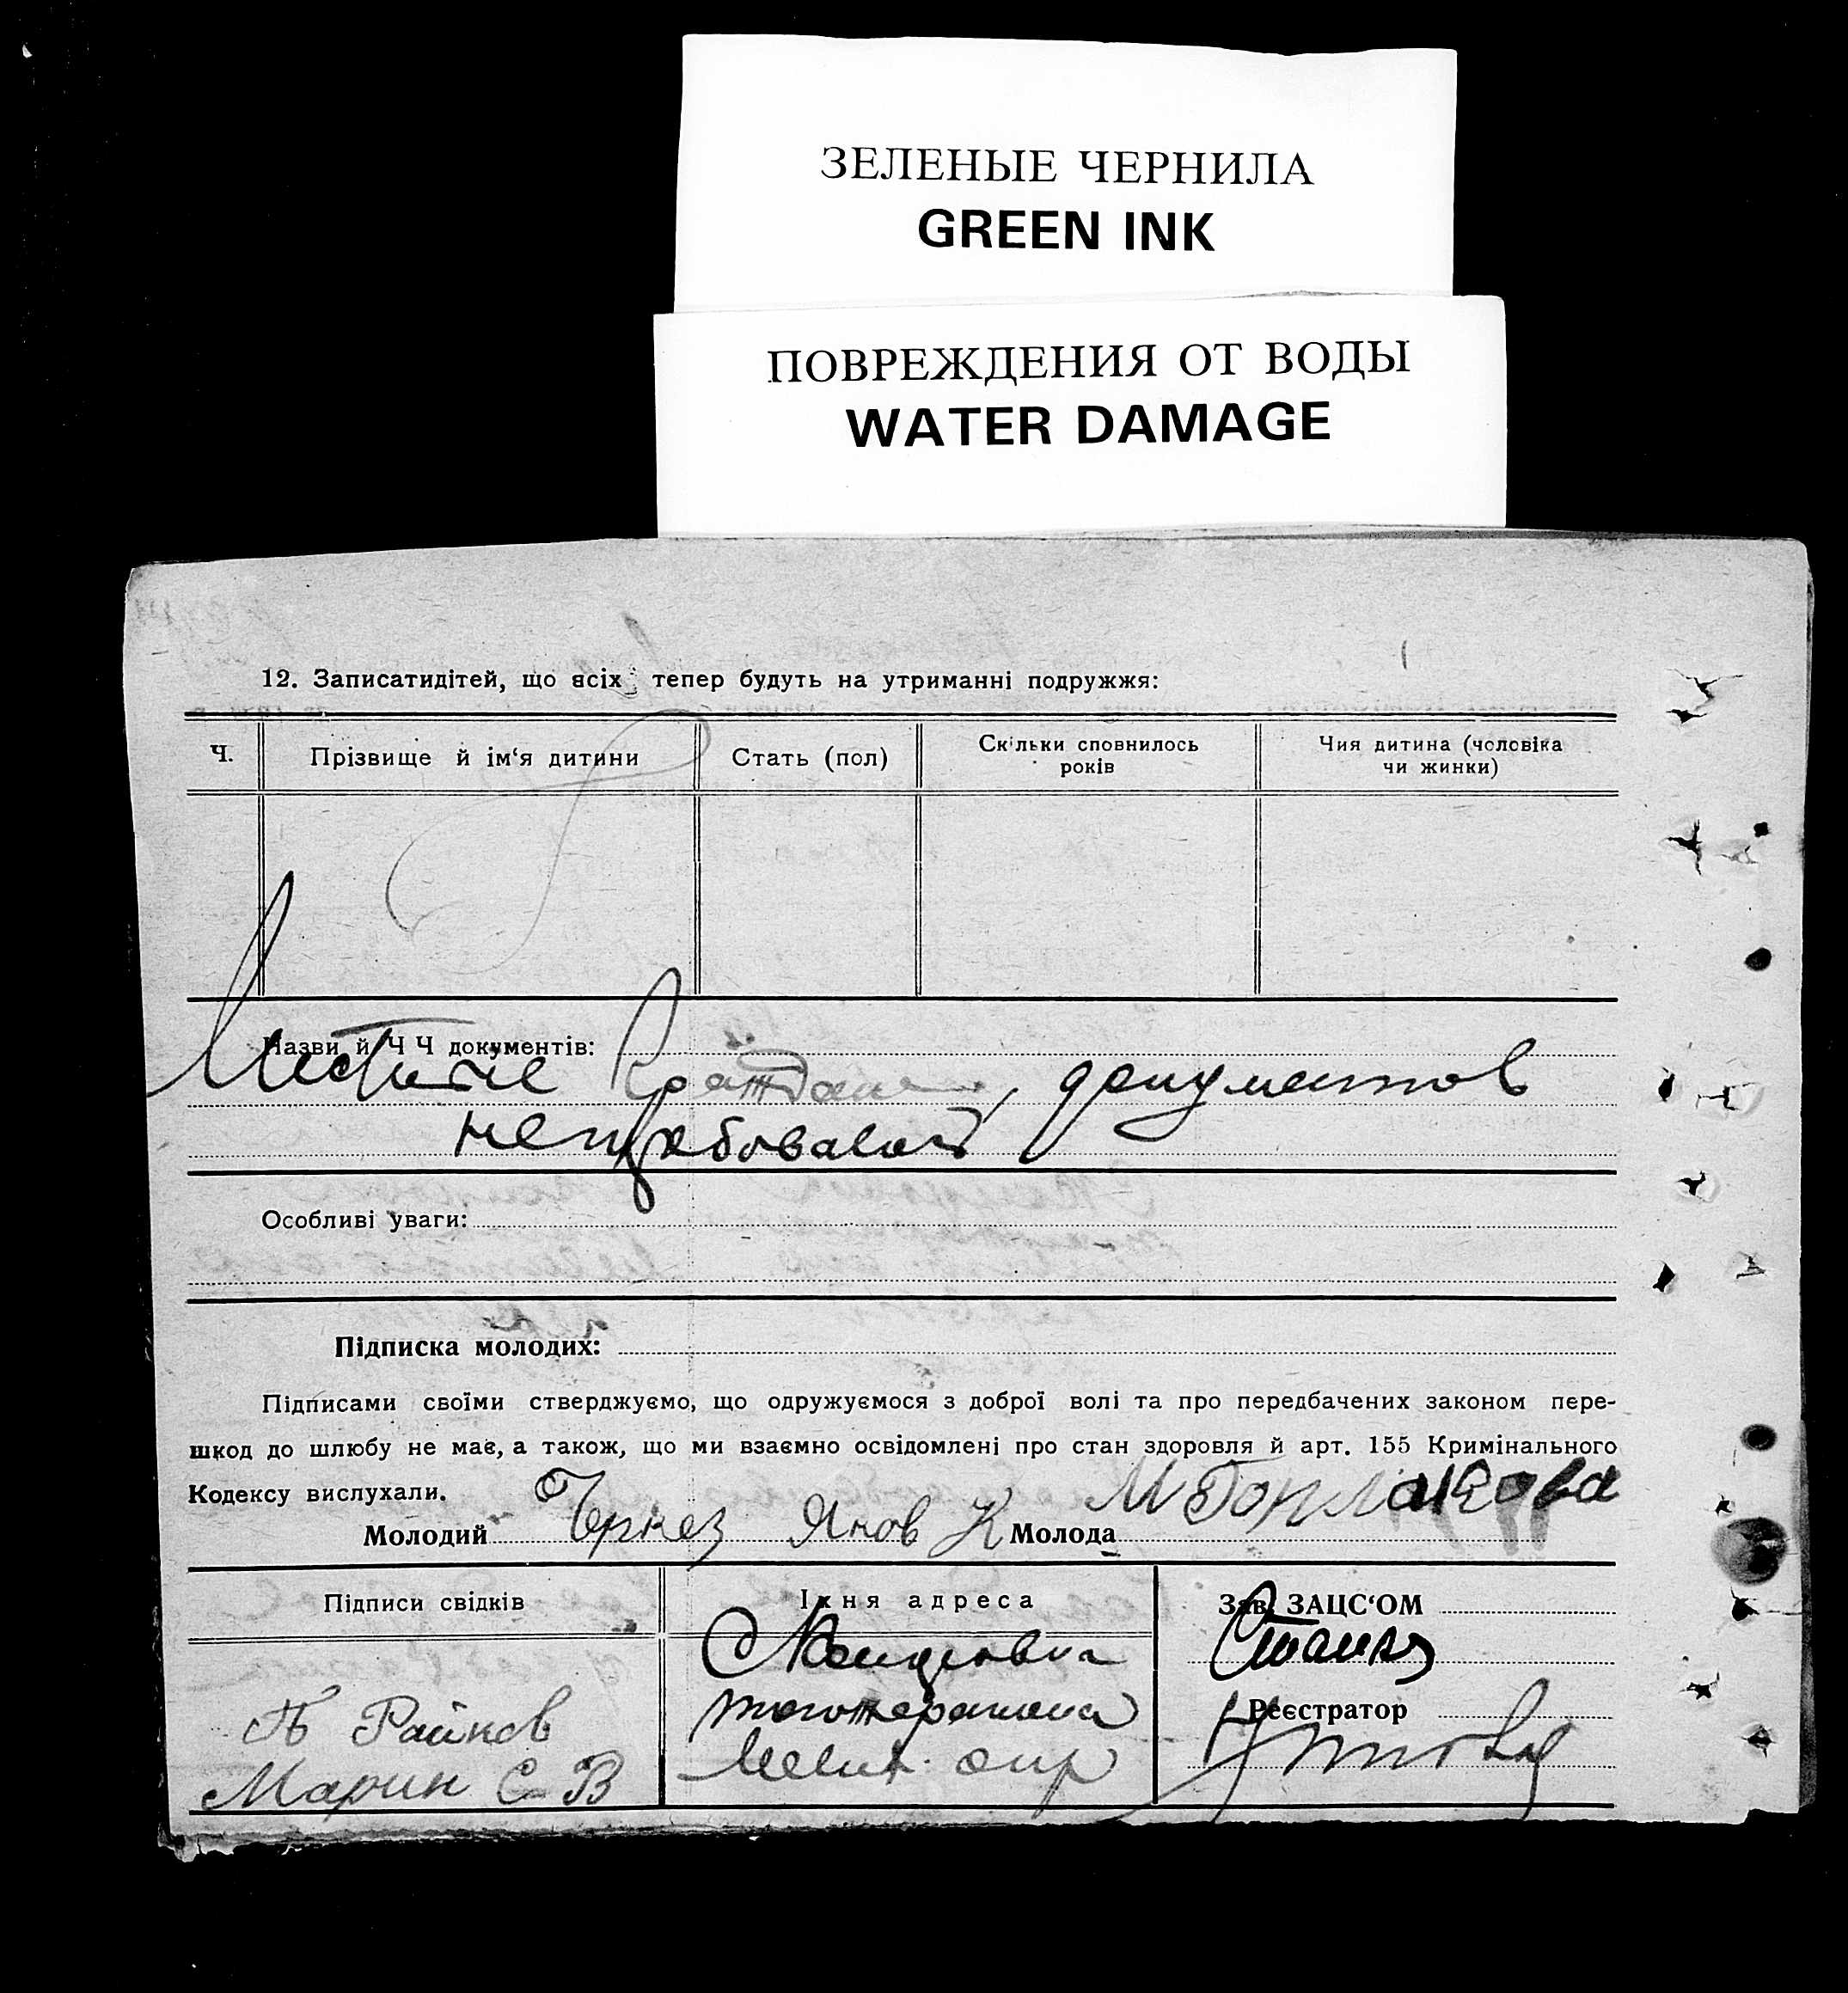 ЗЕЛЕНЫЕ ЧЕРНИЛА
GREEN INK
ПОВРЕЖДЕНИЯ ОТ ВОДЫ
WATER DAMAGE
12. Записатидітей, що всіх тепер будуть на утриманні подружжя:
Ч. Прізвище й ім‘я дитини Стать (пол) Скільки сповнилось років Чия дитина (чоловіка чи жинки)
Назви й Ч Ч документів:
Местние граждане, документов
нетребовалось
Особливі уваги:
Підписка молодих:
Підписами своїми стверджуємо, що одружуємося з доброї волі та про передбачених законом пере-
шкод до шлюбу не має, а також, що ми взаємно освідомлені про стан здоровля й арт. 155 Кримінального
Кодексу вислухали.
Молодий Черкез Яков К Молода М
Підписи свідків Їхня адреса Зав. ЗАЦС‘ОМ
Реєстратор
Райков
Марин С В